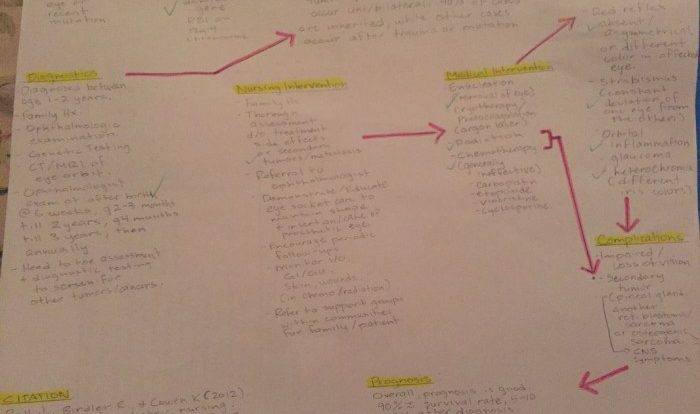 eye or
recent
mutation
gene
occur uni/bilateral.
are inherited, while other cases
occur after trauma or mutation
- Red reflex
absent/
asymmetrical
or different
color in affected
eye.
- Strabismus
(constant
deviation of
one eye from
the other)
- Orbital
inflammation
- glaucoma
- heterochromia
(different
iris colors)
Diagnostics
Diagnosed between
age 1-2 years.
- Family Hx.
- Ophthalmologic
examination.
- Genetic Testing
- CT/MRI of
eye orbit.
- Ophthalmologist
exam at after birth
@ 6 weeks, months
till 2 years, months
till 3 years, then
annually
- Need to hoe assessment
+ diagnostic testing
to screen for
other tumors/cancers.
Nursing Intervention
- Family Hx
- Thorough
assessment
d/o treatment
side effects
or secondary
tumors/metastasis
- Referral to
ophthalmologist
- Demonstrate/Educate
eye socket care to
maintain shape
+ insertion/care of
prosthetic eye
- Encourage periodic
follow-ups
- Monitor I/O,
GI/GU,
skin, wounds.
(in chemo/radiation)
- Refer to support groups
within communities
for family/patient
Medical Intervention
- Enucleation
(removal of eye)
- Cryotherapy/
Photocoagulation
(argon laser)
- Radiation
- Chemotherapy
(generally
ineffective)
- carboplatin
- etoposide
- vinbristine
- cyclosporine.
Complications
- Impaired/
Loss of vision
- Secondary
tumor
(pineal gland,
another
retinoblastoma/
sarcoma
or osteogenic
sarcoma.
→ CNS
symptoms
CITATION
Bindler R. & Cowen K (2012)
nursing.
Prognosis
Overall, prognosis is good.
90% survival rate, 5-10
after diagnosis